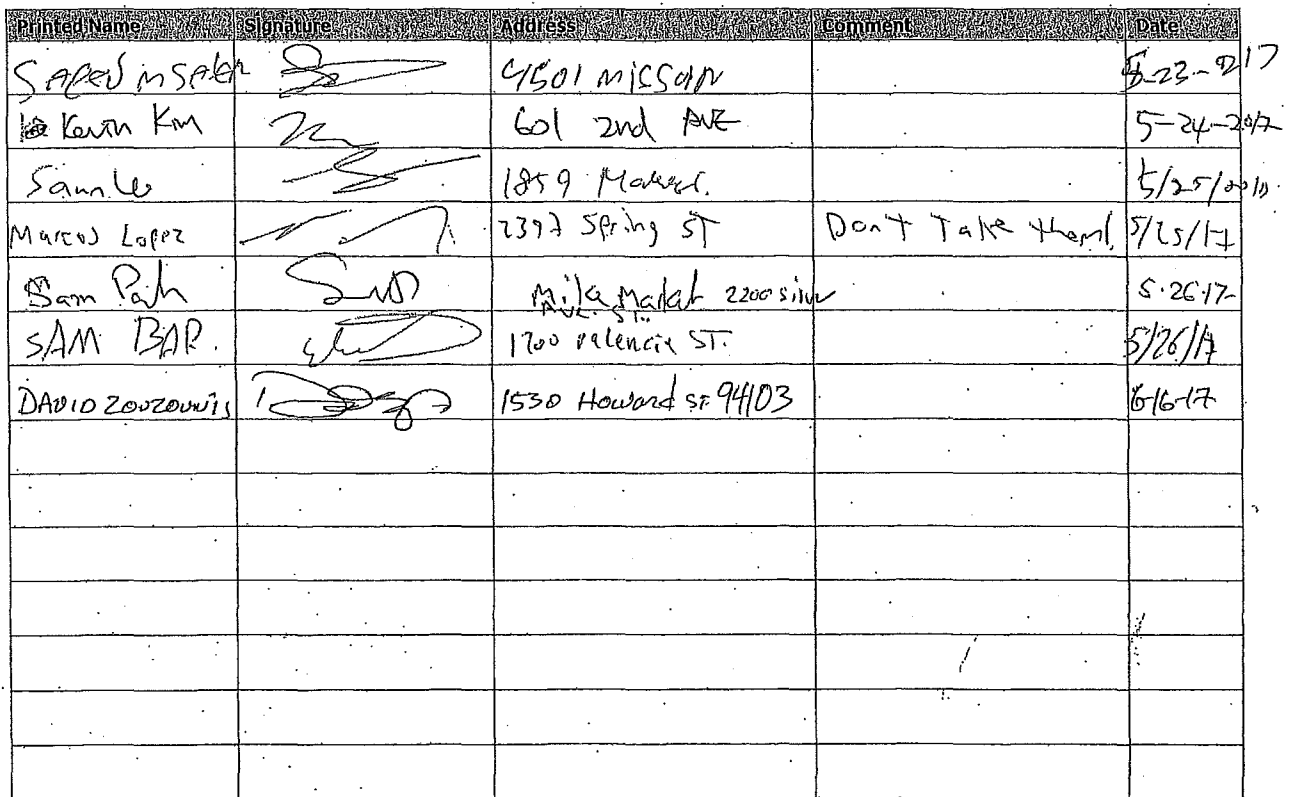 Printed Name Signature Address Comment Date
SAEED M SALEH 4501 MISSION 5-23-217
Kevin Kim 601 2nd AVE 5-24-2017
Sam Lee 1859 5/25/
Marcos Lopez 2397 Spring ST Don't Take them! 5/25/17
Sam 2200 5.26.17
AVE. ST.
SAM BAR. 1700 valencia ST. 5/26/17
DAVID ZOUZOUNIS 1530 Howard ST. 94103 6-16-17